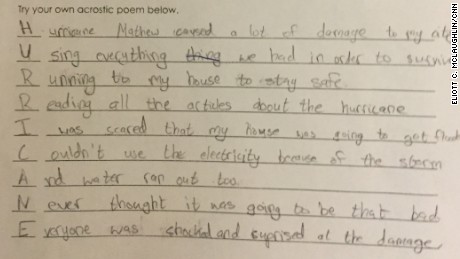 Try your own acrostic poem below.
Hurricane Mathew caused a lot of damage to my
Using everything thing we had in order to survive
Running to my house to stay safe
Reading all the articles about the hurricane
I was scared that my house was going to get
Couldn't use the electricity because of the storm
And water ran out too.
Never thought it was going to be that bad
Everyone was shocked and suprised at the damage
ELIOTT C. MCLAUGHLIN/CNN